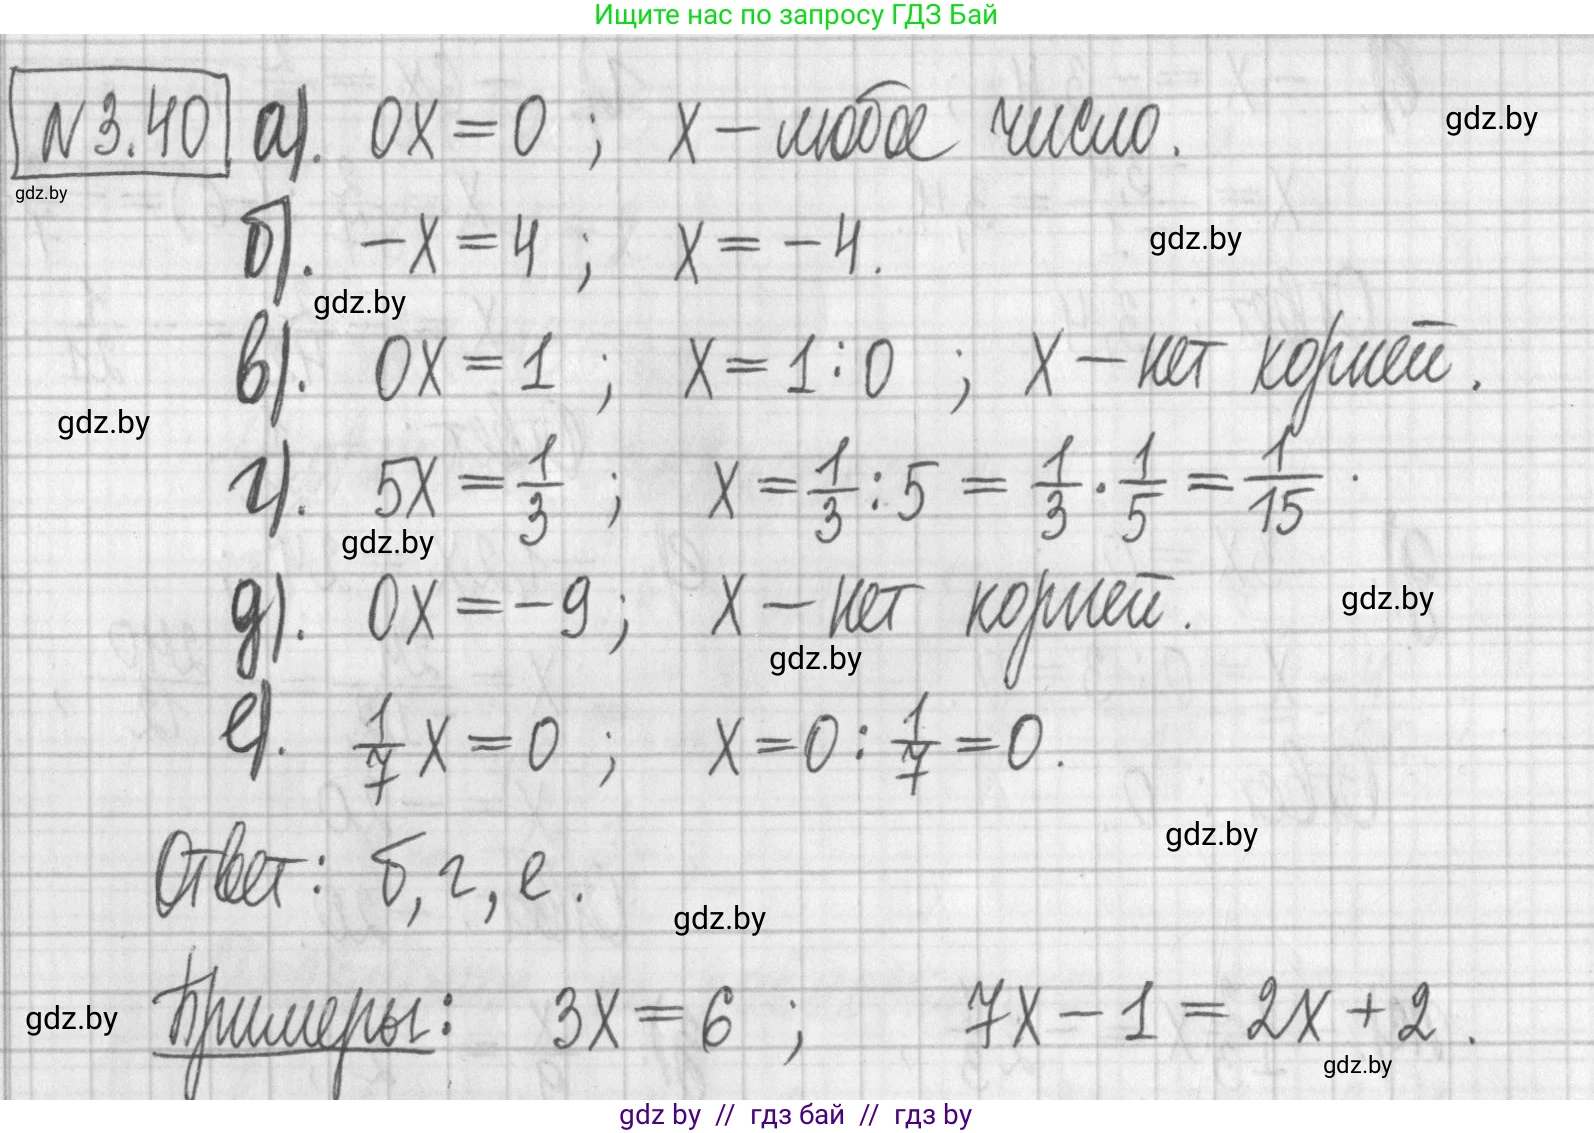 Ищите нас по запросу ГДЗ Бай
N 3.40 а). 0x = 0 ; x – любое число. gdz.by
gdz.by
б). -x = 4 ; x = -4. gdz.by
gdz.by
в). 0x = 1 ; x = 1:0 ; x – нет корней.
gdz.by
г). 5x = 1/3 ; x = 1/3 : 5 = 1/3 · 1/5 = 1/15.
gdz.by
д). 0x = -9 ; x – нет корней. gdz.by
gdz.by
е). 1/7 x = 0 ; x = 0 : 1/7 = 0.
gdz.by
Ответ: б, г, е.
gdz.by
gdz.by Примеры: 3x = 6 ; 7x - 1 = 2x + 2.
gdz.by
gdz by // гдз бай // гдз by